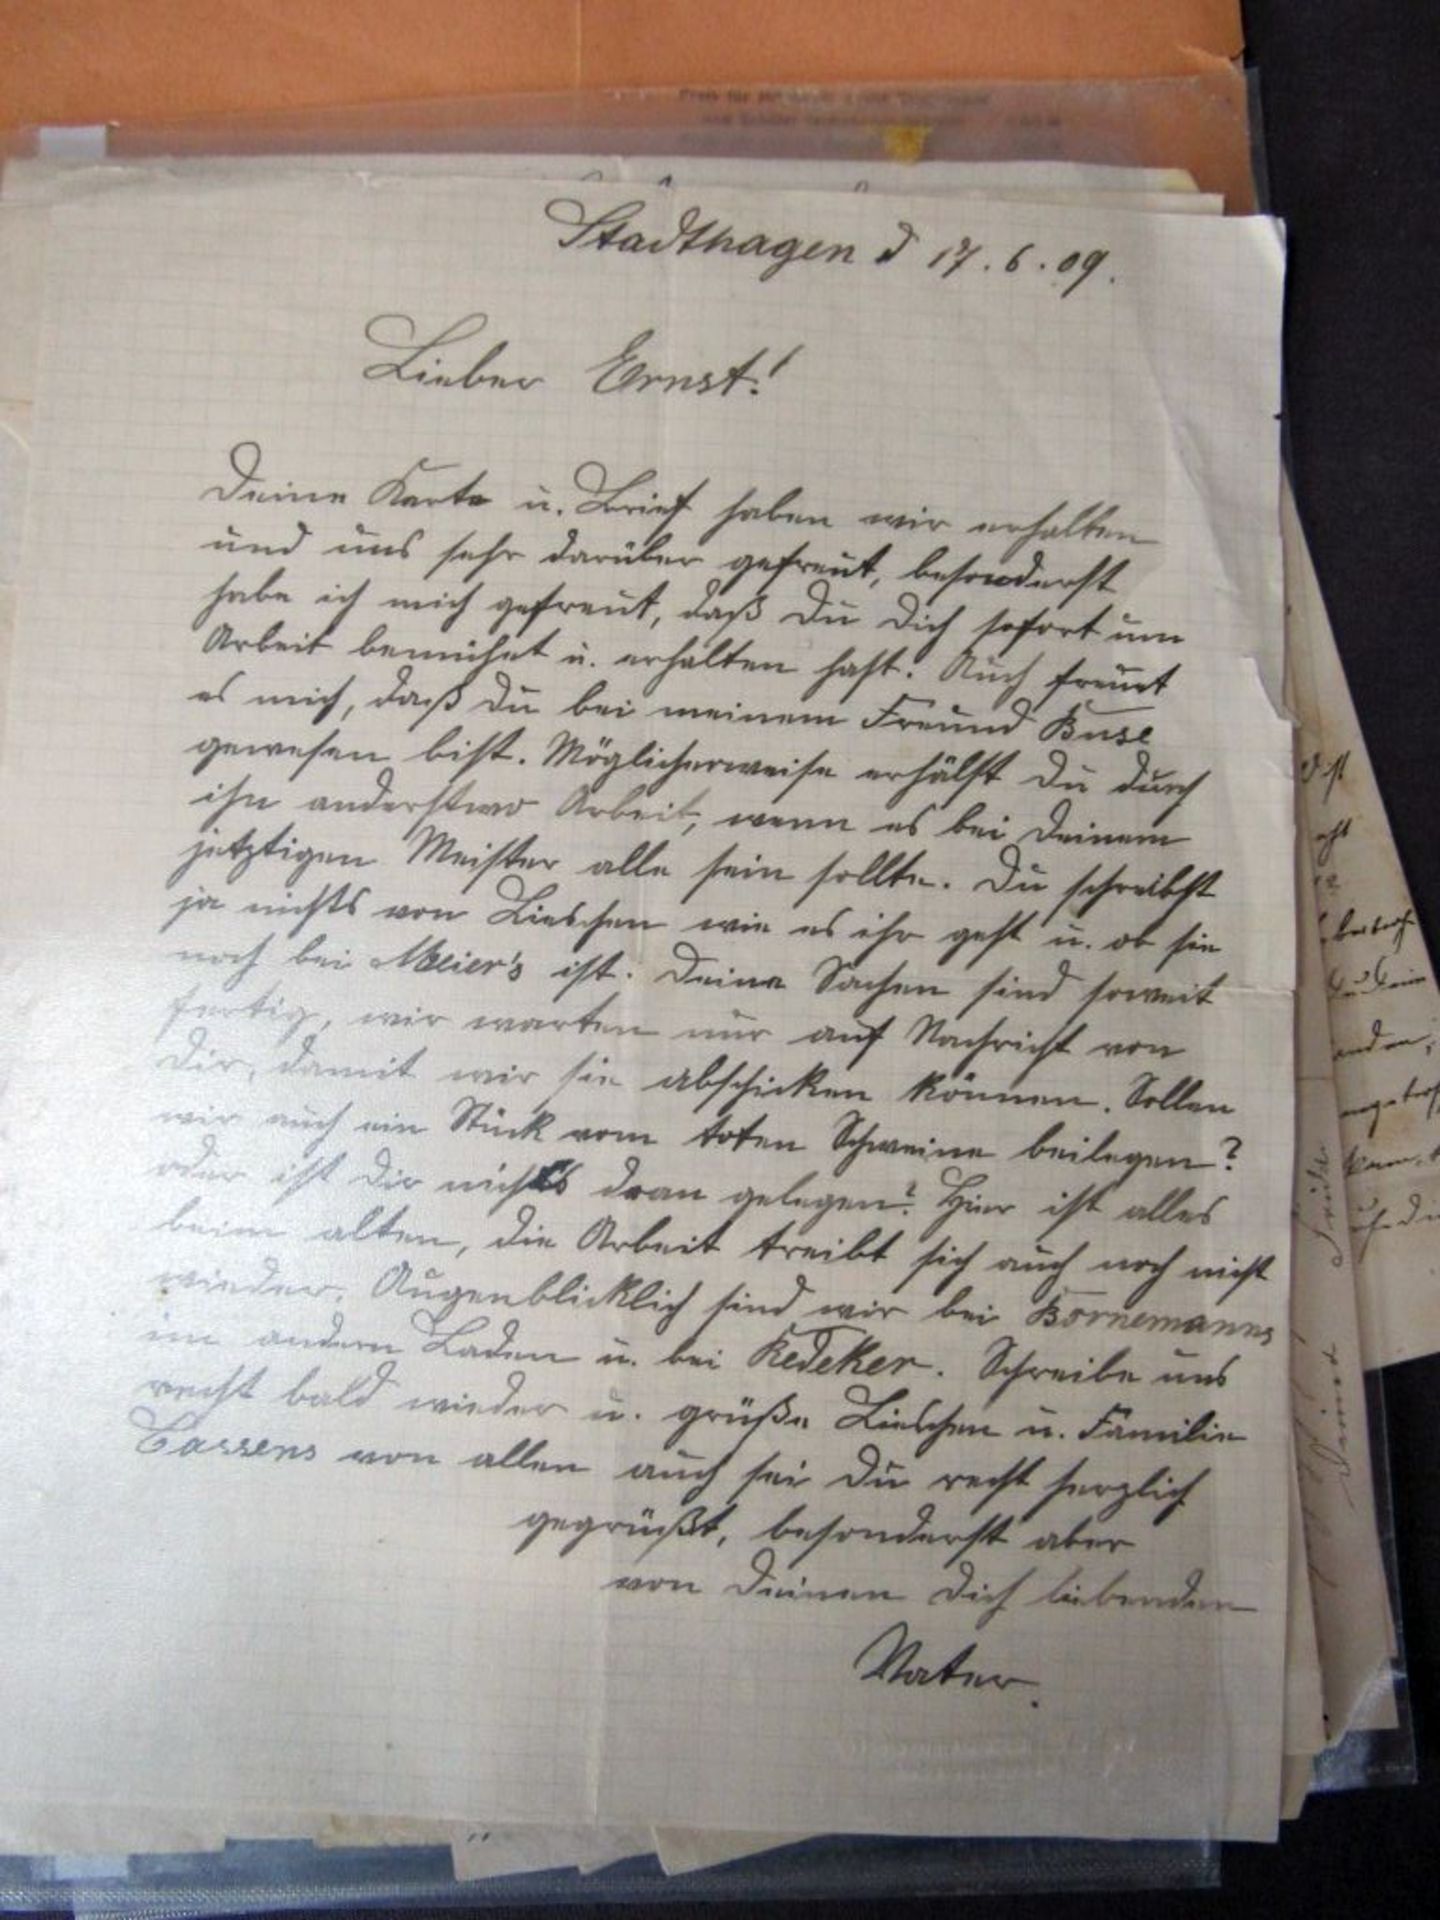 Stadthagen d 17.6.09.
Lieber Ernst!
Deine Karte u. Brief haben wir erhalten
und uns sehr darüber gefreut, besonderst
habe ich mich gefreut, daß Du Dich sofort um
Arbeit bemühet u. erhalten hast. Auch freuet
es mich, daß Du bei meinem Freund Buse
gewesen bist. Möglicherweise erhälst Du durch
ihn anderstwo Arbeit, wenn es bei Deinem
jetztigen Meister alle sein sollte. Du schreibst
ja nichts von Lieschen wie es ihr geht u. ob sie
noch bei Meier's ist. Deine Sachen sind soweit
fertig, wir warten nur auf Nachricht von
Dir, damit wir sie abschicken können. Sollen
wir auch ein Stück vom toten Schweine beilegen?
oder ist Dir nichts dran gelegen? Hier ist alles
beim alten, die Arbeit treibt sich auch noch nicht
wieder. Augenblicklich sind wir bei Bornemanns
im andern Laden u. bei Redeker. Schreibe uns
recht bald wieder u. grüße Lieschen u. Familie
Cassens von allen auch sei Du recht herzlich
gegrüßt, besonderst aber
von Deinen Dich liebenden
Vater.